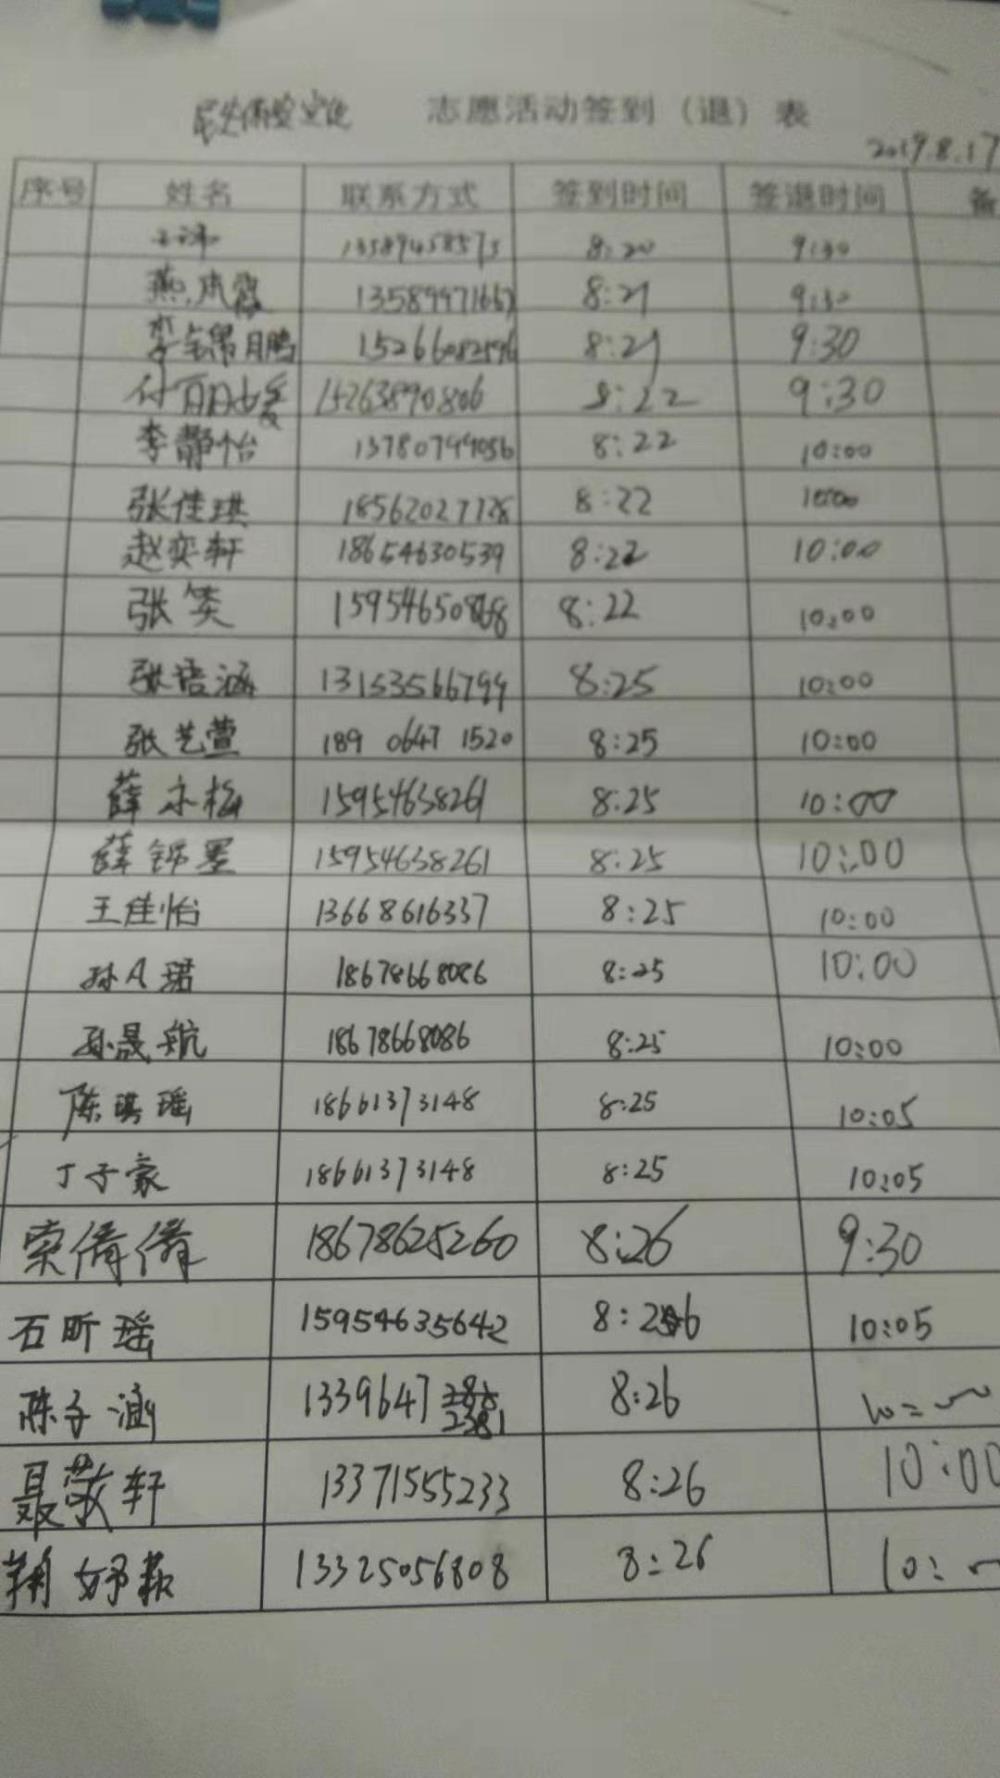 志愿活动签到（退）表
2019.8.17
序号 姓名 联系方式 签到时间 签退时间 备
13589458573 8:20 9:30
燕 霞 8:21 9:30
李锦鹏 8:21 9:30
付 15263890806 8:22 9:30
李静怡 13780799056 8:22 10:00
张佳琪 18562027728 8:22 10:00
赵奕轩 18654630539 8:22 10:00
张笑 8:22 10:00
张语涵 13153566799 8:25 10:00
张艺萱 189 0647 1520 8:25 10:00
薛 15954638261 8:25 10:00
薛锦墨 15954638261 8:25 10:00
王佳怡 13668616337 8:25 10:00
孙凡珺 18678668086 8:25 10:00
孙晟航 18678668086 8:25 10:00
陈琪瑶 18661373148 8:25 10:05
丁子豪 18661373148 8:25 10:05
索倩倩 18678625260 8:26 9:30
石昕瑶 15954635642 8:26 10:05
陈子涵 13396472381 8:26
聂敬轩 13371555233 8:26 10:00
13325056808 8:26